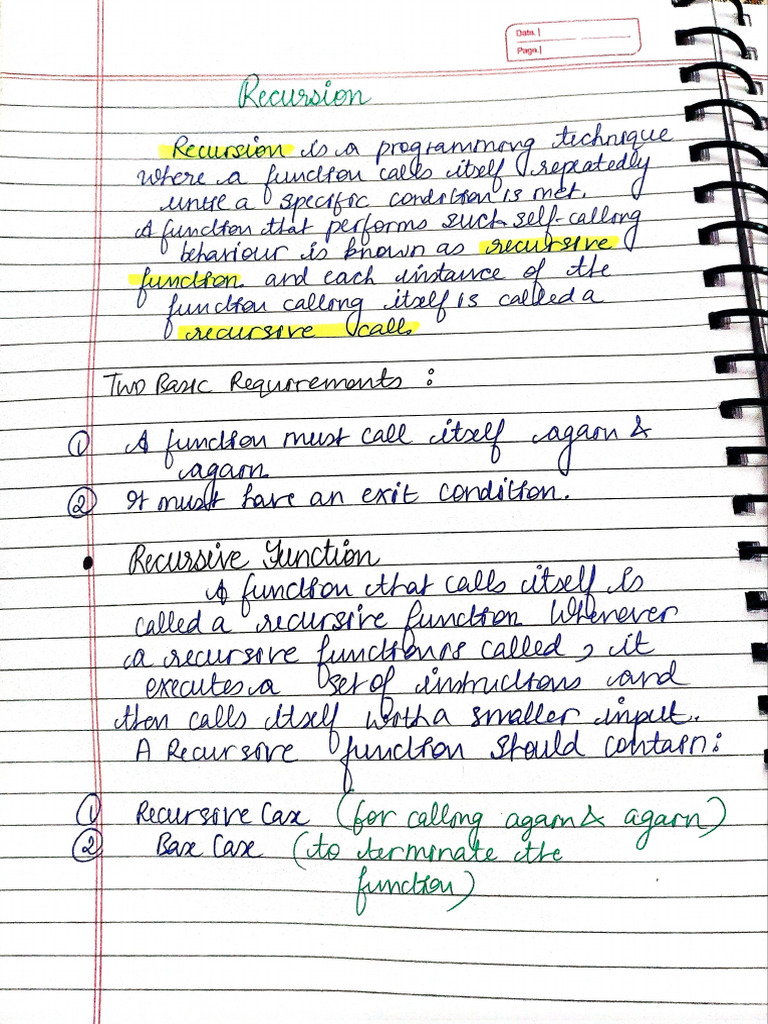 Date.
Page.
Recursion
Recursion is a programming technique
where a function calls itself repeatedly
until a specific condition is met.
A function that performs such self-calling
behaviour is known as recursive
function. and each instance of the
function calling itself is called a
recursive call.
Two Basic Requirements :
① A function must call itself again &
again.
② It must have an exit condition.
• Recursive Function
A function that calls itself is
called a recursive function. Whenever
a recursive function is called, it
executes a set of instructions and
then calls itself with a smaller input.
A Recursive function should contain:
① Recursive Case (for calling again & again)
② Base Case (to terminate the
function)